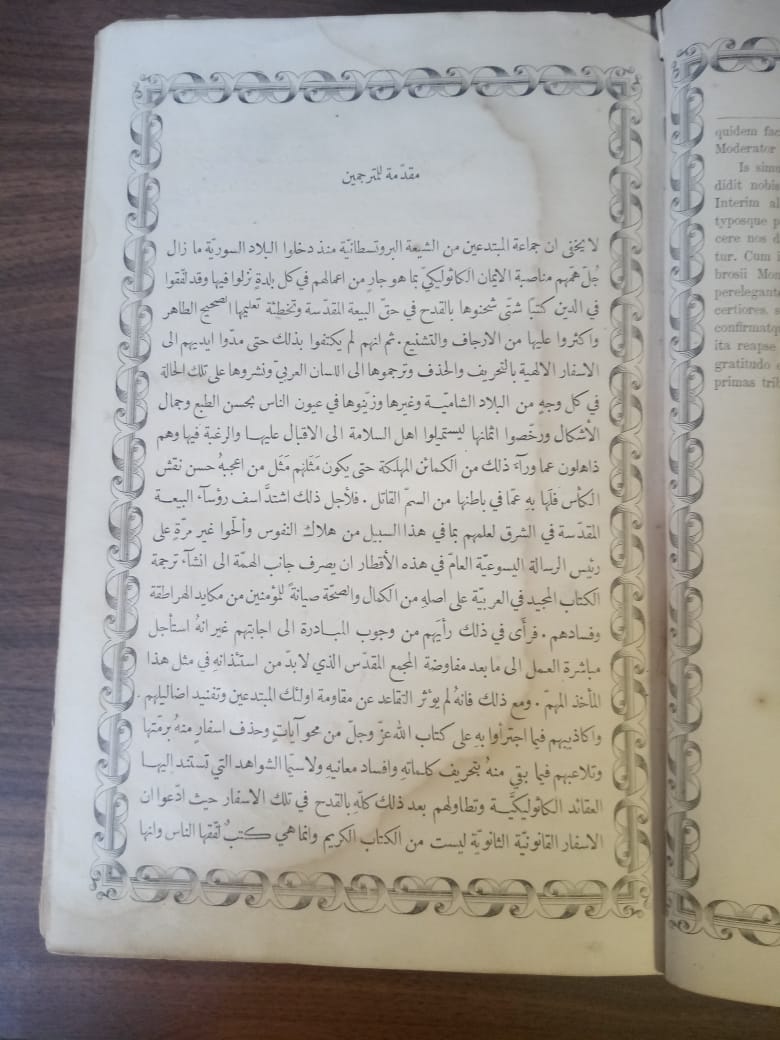 مقدّمة للمترجمين
لا يخفى ان جماعة المبتدعين من الشيعة البروتسطانيّة منذ دخلوا البلاد السوريّة ما زال
جُلّ همّهم مناصبة الايمان الكاثوليكيّ بما هو جارٍ من اعمالهم في كل بلدةٍ نزلوا فيها وقد لفّقوا
في الدين كتبًا شتّى شحنوها بالقدح في حقّ البيعة المقدّسة وتخطئة تعليمها الصحيح الطاهر
واكثروا عليها من الارجاف والتشنيع . ثم انهم لم يكتفوا بذلك حتى مدّوا ايديهم الى
الاسفار الالهية بالتحريف والحذف وترجموها الى اللسان العربيّ ونشروها على تلك الحالة
في كل وجهٍ من البلاد الشاميّــة وغيرها وزيّنوها في عيون الناس بحسن الطبع وجمال
الأشكال ورخّصوا اثمانها ليستميلوا اهل السلامة الى الاقبال عليهــا والرغبة فيها وهم
ذاهلون عما ورآء ذلك من الكمائن المهلكة حتى يكون مَثَلهم مَثَل من اعجبهُ حسن نقش
الكأس فلَها بهِ عمّا في باطنها من السمّ القاتل . فلأجل ذلك اشتدَّ اسف رؤسآء البيعــة
المقدّسة في الشرق لعلمهم بما في هذا السبيل من هلاك النفوس وألحّوا غير مرّةٍ على
رئيس الرسالة اليسوعيّة العامّ في هذه الأقطار ان يصرف جانب الهمّة الى انشآء ترجمة
الكتاب المجيد في العربيّة على اصلهِ من الكمال والصحّة صيانةً للمؤمنين من مكايد الهراطقة
وفسادهم . فرأى في ذلك رأيهم من وجوب المبــادرة الى اجابتهم غير انهُ استأجل
مباشرة العمل الى ما بعد مفاوضة المجمع المقدّس الذي لا بدّ من استئذانهِ في مثل هذا
المأخذ المهمّ . ومع ذلك فانهُ لم يؤثر التقاعد عن مقاومة اولئك المبتدعين وتفنيد اضاليلهم
واكاذيبهم فيما اجترأوا بهِ على كتاب الله عزّ وجلّ من محو آياتٍ وحذف اسفارٍ منهُ برمّتها
وتلاعبهم فيما بقي منهُ بتحريف كلماتهِ وافساد معانيهِ ولاسيّما الشواهد التي تستند اليهــا
العقائد الكاثوليكيَّــة وتطاولهم بعد ذلك كلّهِ بالقدح في تلك الاسفار حيث ادّعوا ان
الاسفار القانونيّة الثانويّة ليست من الكتاب الكريم وانما هي كتبٌ لفّقها الناس وانها
quidem fac
Moderator
Is simu
didit nobis
Interim al
typosque p
cere nos d
tur. Cum i
brosii Mon
perelegante
certiores, s
confirmatq
ita reapse
gratitudo
primas trib